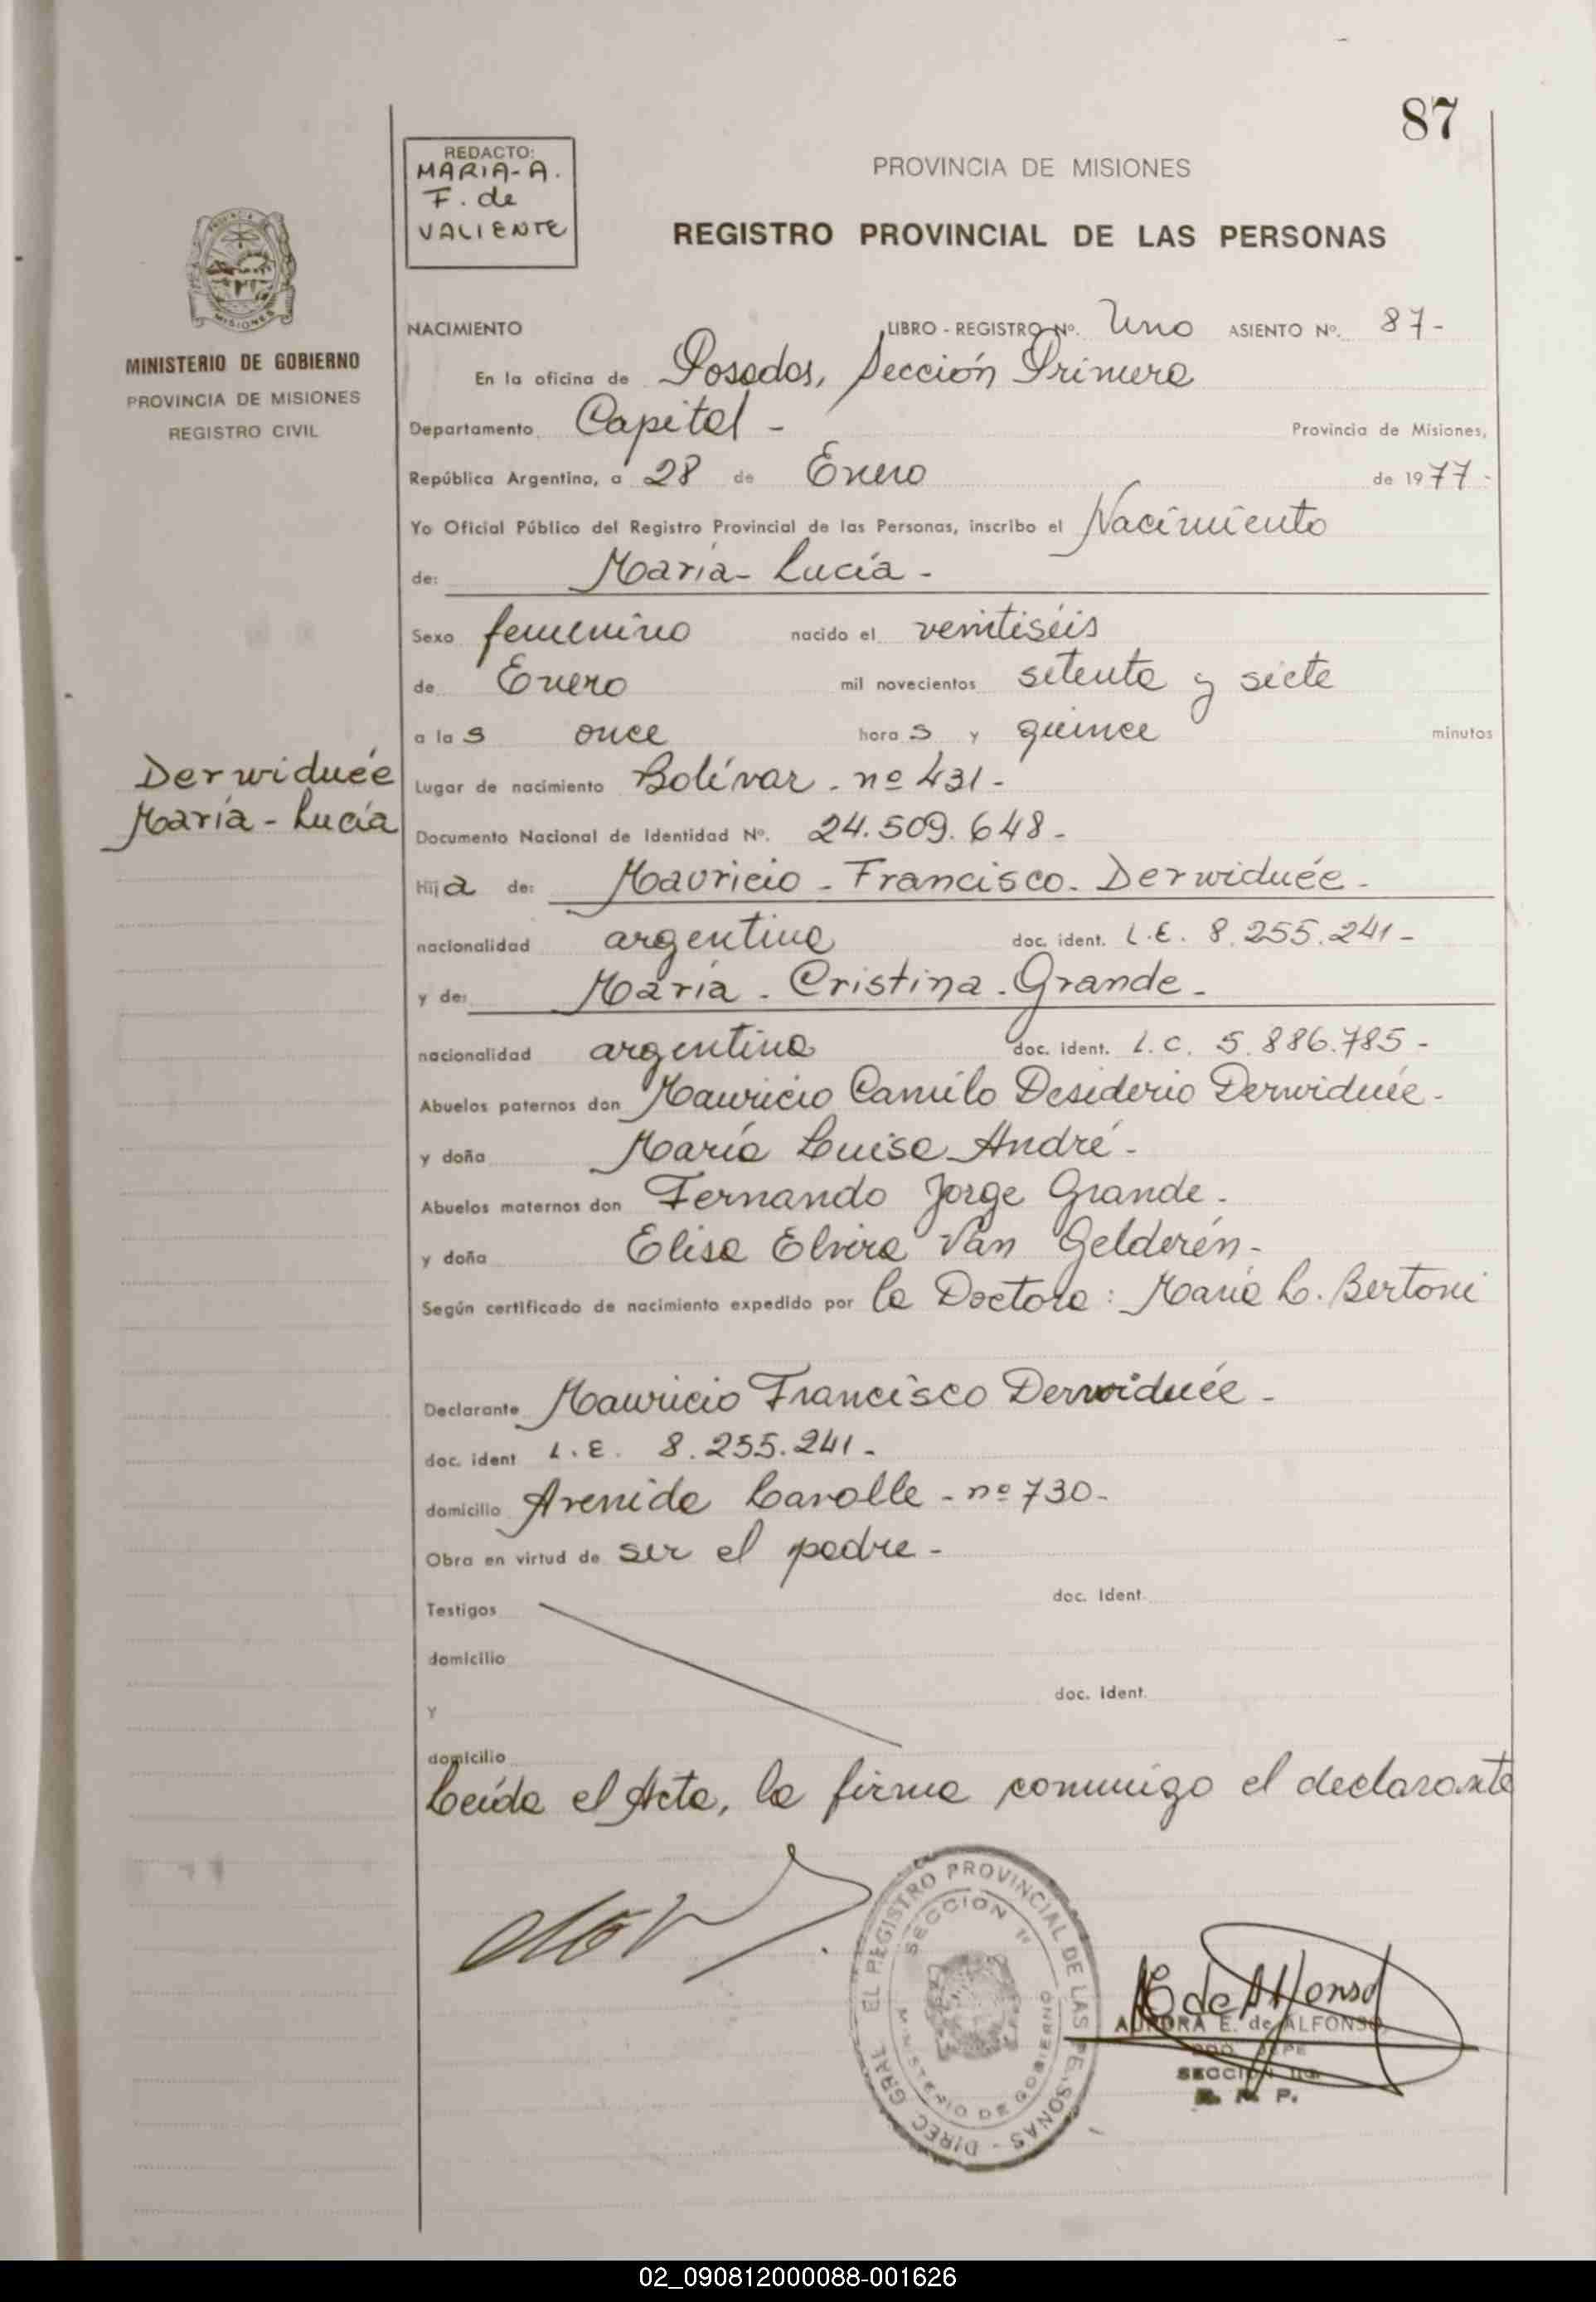 87
REDACTO:
MARIA-A.
F. de
VALIENTE
PROVINCIA DE MISIONES
REGISTRO PROVINCIAL DE LAS PERSONAS
MISIONES
MINISTERIO DE GOBIERNO
PROVINCIA DE MISIONES
REGISTRO CIVIL
NACIMIENTO LIBRO - REGISTRO Nº. Uno ASIENTO Nº. 87-
En la oficina de Posadas, Sección Primera
Departamento Capital - Provincia de Misiones,
República Argentina, a 28 de Enero de 1977-
Yo Oficial Público del Registro Provincial de las Personas, inscribo el Nacimiento
de: María- Lucía -
Sexo femenino nacido el veintiséis
de Enero mil novecientos setenta y siete
a las once horas y quince minutos
Derwiduée
María - Lucía
Lugar de nacimiento Bolívar - nº 431-
Documento Nacional de Identidad Nº. 24.509.648-
Hija de: Mauricio - Francisco - Derwiduée -
nacionalidad argentina doc. ident. L.E. 8.255.241-
y de: María - Cristina - Grande -
nacionalidad argentina doc. ident. L.C. 5.886.785 -
Abuelos paternos don Mauricio Camilo Desiderio Derwiduée -
y doña María Luisa André -
Abuelos maternos don Fernando Jorge Grande -
y doña Elisa Elvira Van Gelderén -
Según certificado de nacimiento expedido por la Doctora: María L. Bertoni
Declarante Mauricio Francisco Derwiduée -
doc. ident L.E. 8.255.241-
domicilio Avenida Lavalle - nº 730-
Obra en virtud de ser el padre -
Testigos doc. Ident.
domicilio
Y doc. Ident.
domicilio
Leída el Acta, la firma conmigo el declarante
DIREC. GRAL. EL REGISTRO PROVINCIAL DE LAS PERSONAS -
SECCION 1ª
MINISTERIO DE GOBIERNO
AE de Alfonso
AURORA E. de ALFONSO
JEFE
SECCION 1ra
R. P. P.
02_090812000088-001626